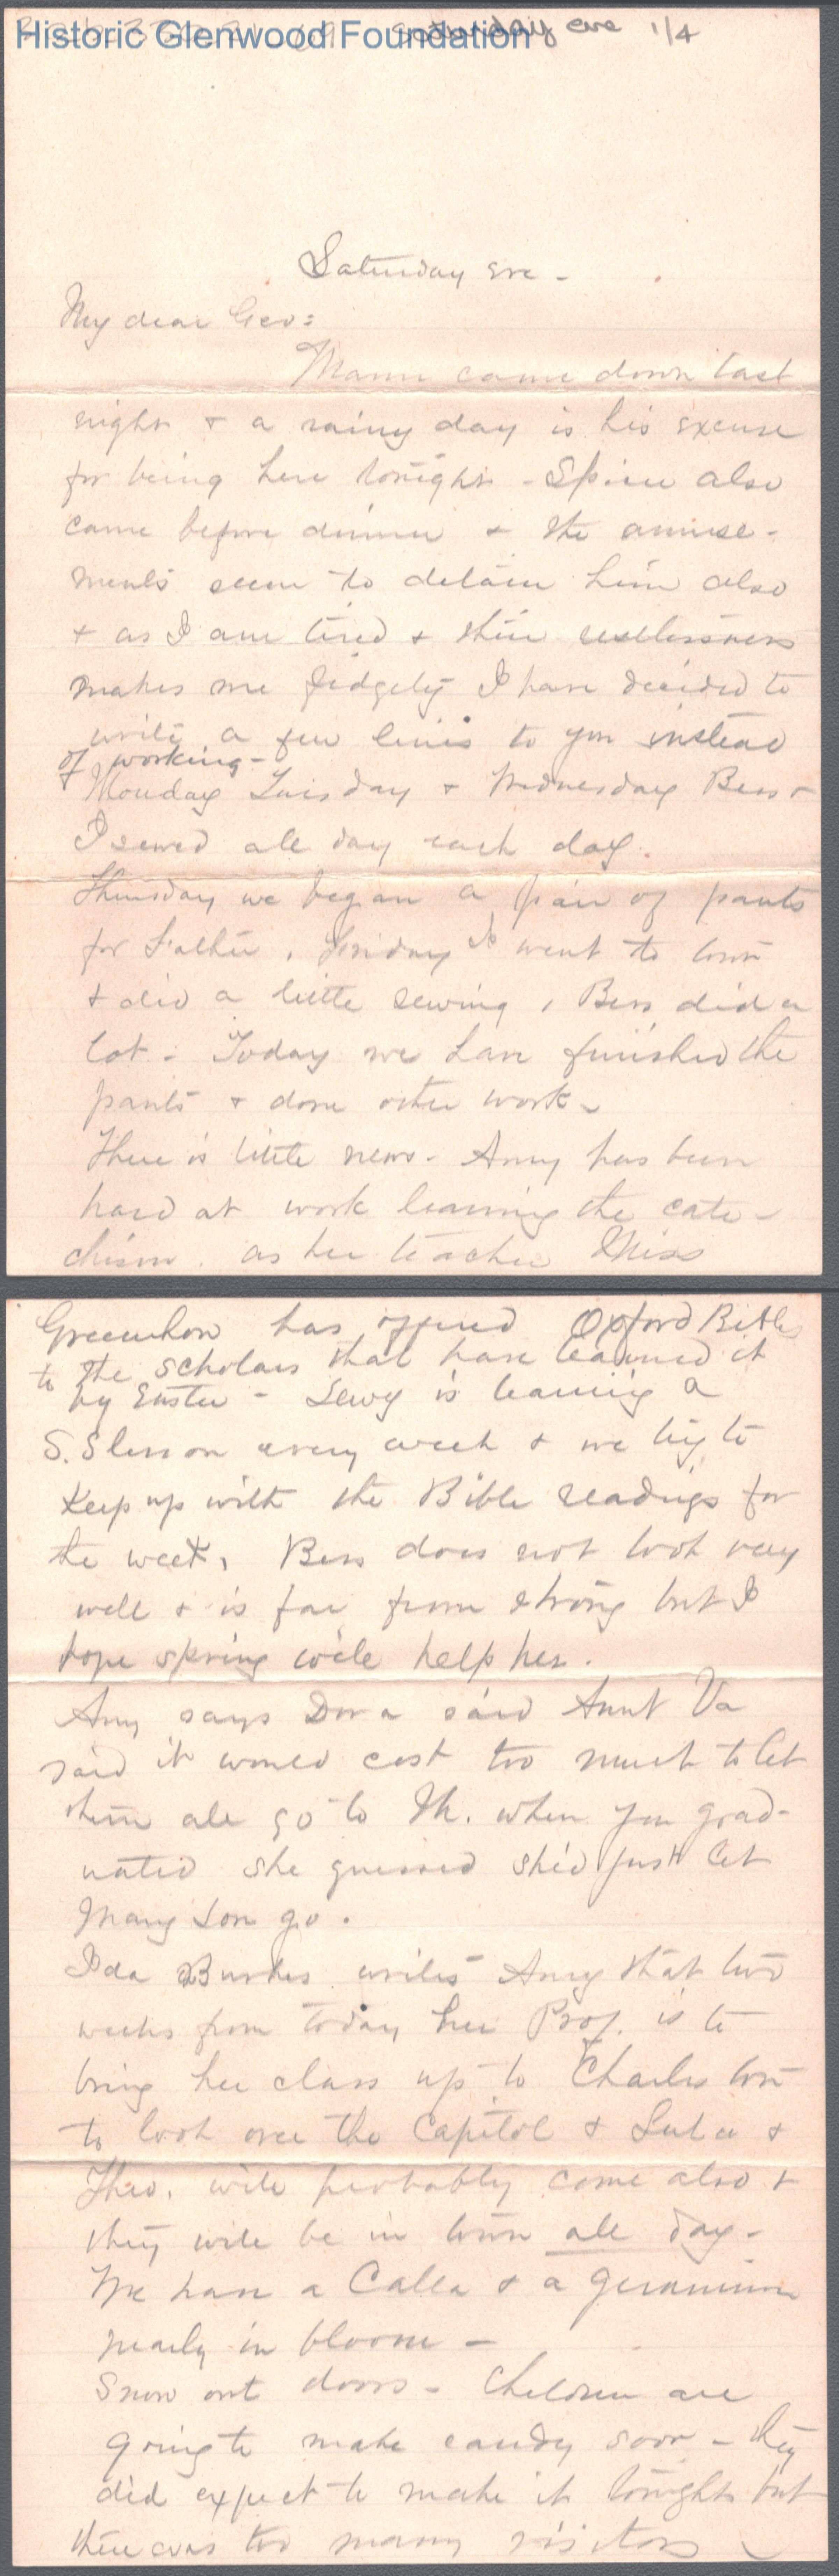 Historic Glenwood Foundation
Saturday eve 1/4
Saturday eve -
My dear Geo:
Mann came down last
night & a rainy day is his excuse
for being here tonight - Spicer also
came before dinner & the amuse-
ments seem to detain him also
& as I am tired & their restlessness
makes me fidgety I have decided to
write a few lines to you instead
of working -
Monday Tuesday & Wednesday Bess &
I sewed all day each day.
Thursday we began a pair of pants
for Father, Friday I went to town
& did a little sewing, Bess did a
lot - Today we have finished the
pants & done other work -
There is little news - Amy has been
hard at work learning the cate-
chism. as her teacher Miss
Greenhow has offered Oxford Bibles
to the scholars that have learned it
by Easter - Lewy is learning a
S.S lesson every week & we try to
keep up with the Bible readings for
the week, Bess does not look very
well & is far from strong but I
hope spring will help her.
Amy says Dora said Aunt Va
said it would cost too much to let
them all go to M. when you grad-
uated she guessed she'd just let
Mary Lou go.
Ida Burkes writes Amy that two
weeks from today her Prof. is to
bring her class up to Charleston
to look over the Capitol & Lula &
Theo. will probably come also &
they will be in town all day -
We have a Calla & a geranium
nearly in bloom -
Snow out doors - Children are
going to make candy soon - they
did expect to make it tonight but
there was too many visitors -